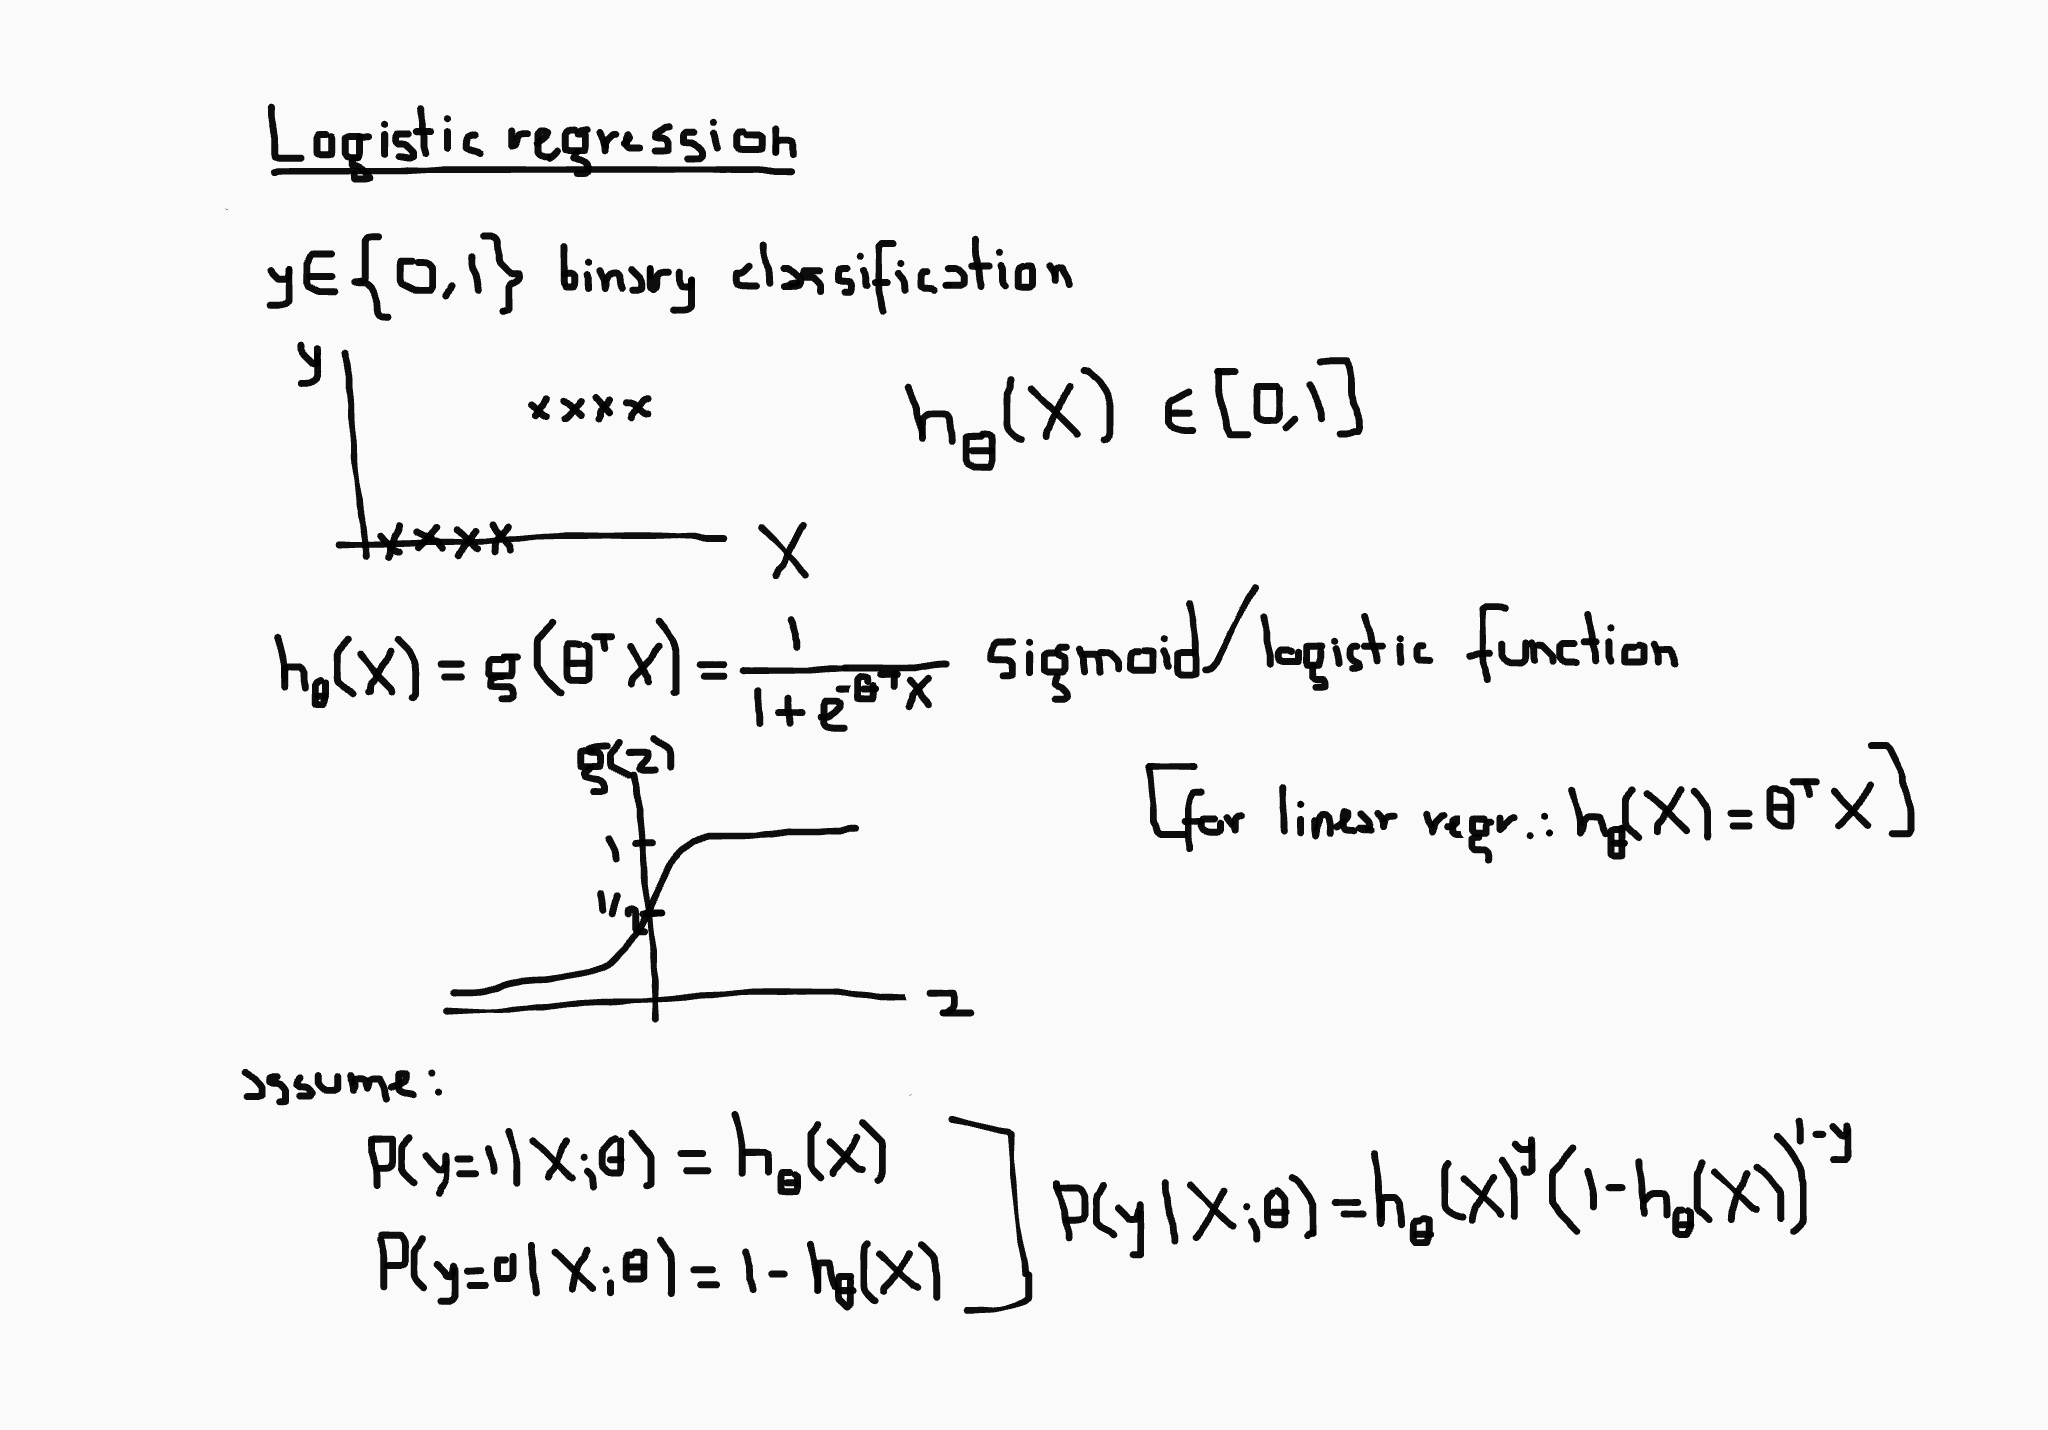 Logistic regression
y∈{0,1} binary classification
y
xxxx
h_θ(X) ∈[0,1]
xxxx
X
h_θ(X) = g(θ^T X) = 1/(1+e^(-θ^T X)) sigmoid/logistic function
g(z)
[for linear regr.: h_θ(X) = θ^T X]
1
1/2
z
assume:
P(y=1|X;θ) = h_θ(X)
P(y=0|X;θ) = 1 - h_θ(X)
P(y|X;θ) = h_θ(X)^y (1-h_θ(X))^(1-y)